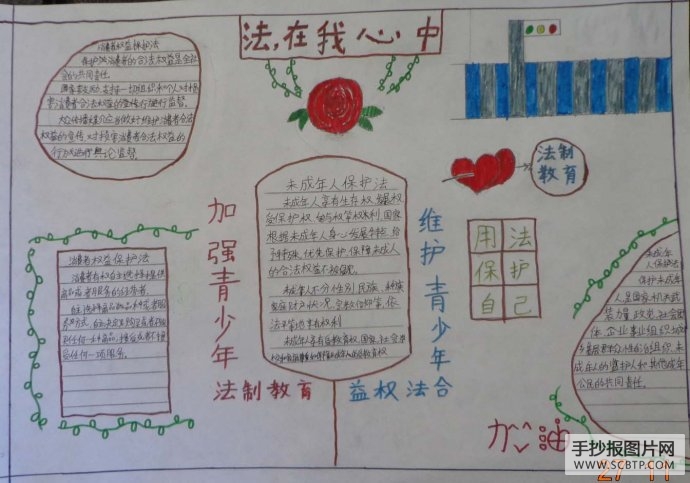 法,在我心中
消费者权益保护法
保护消费者的合法权益是全社
会的共同责任。
国家鼓励,支持一切组织和个人对损
害消费者合法权益的行为进行社会监督。
大众传播媒介应当做好维护消费者合法
权益的宣传,对损害消费者合法权益的
行为进行舆论监督。
法制
教育
加强青少年
法制教育
未成年人保护法
未成年人享有生存权、发展权
受保护权、参与权等权利,国家
根据未成年人身心发展特点给
予特殊、优先保护,保障未成人
的合法权益不被侵犯。
未成年人不分性别、民族、种族
家庭财产状况、宗教信仰等,依
法平等地享有权利
未成年人享有受教育权,国家、社会、学校
维护青少年
益权法合
用法
保护
自己
消费者权益保护法
消费者有权自主选择提供
商品或者服务的经营者。
任何一种商品、接受或者不接
受任何一项服务。
未成年
人保护法
保护未成年
人,是国家机关、武
装力量、政党、社会团
体、企业事业组织、城
乡基层群众性自治组织、未
成年人的监护人和其他成年
公民的共同责任。
加油
手抄报图片网
WWW.SCBTP.COM
27 11